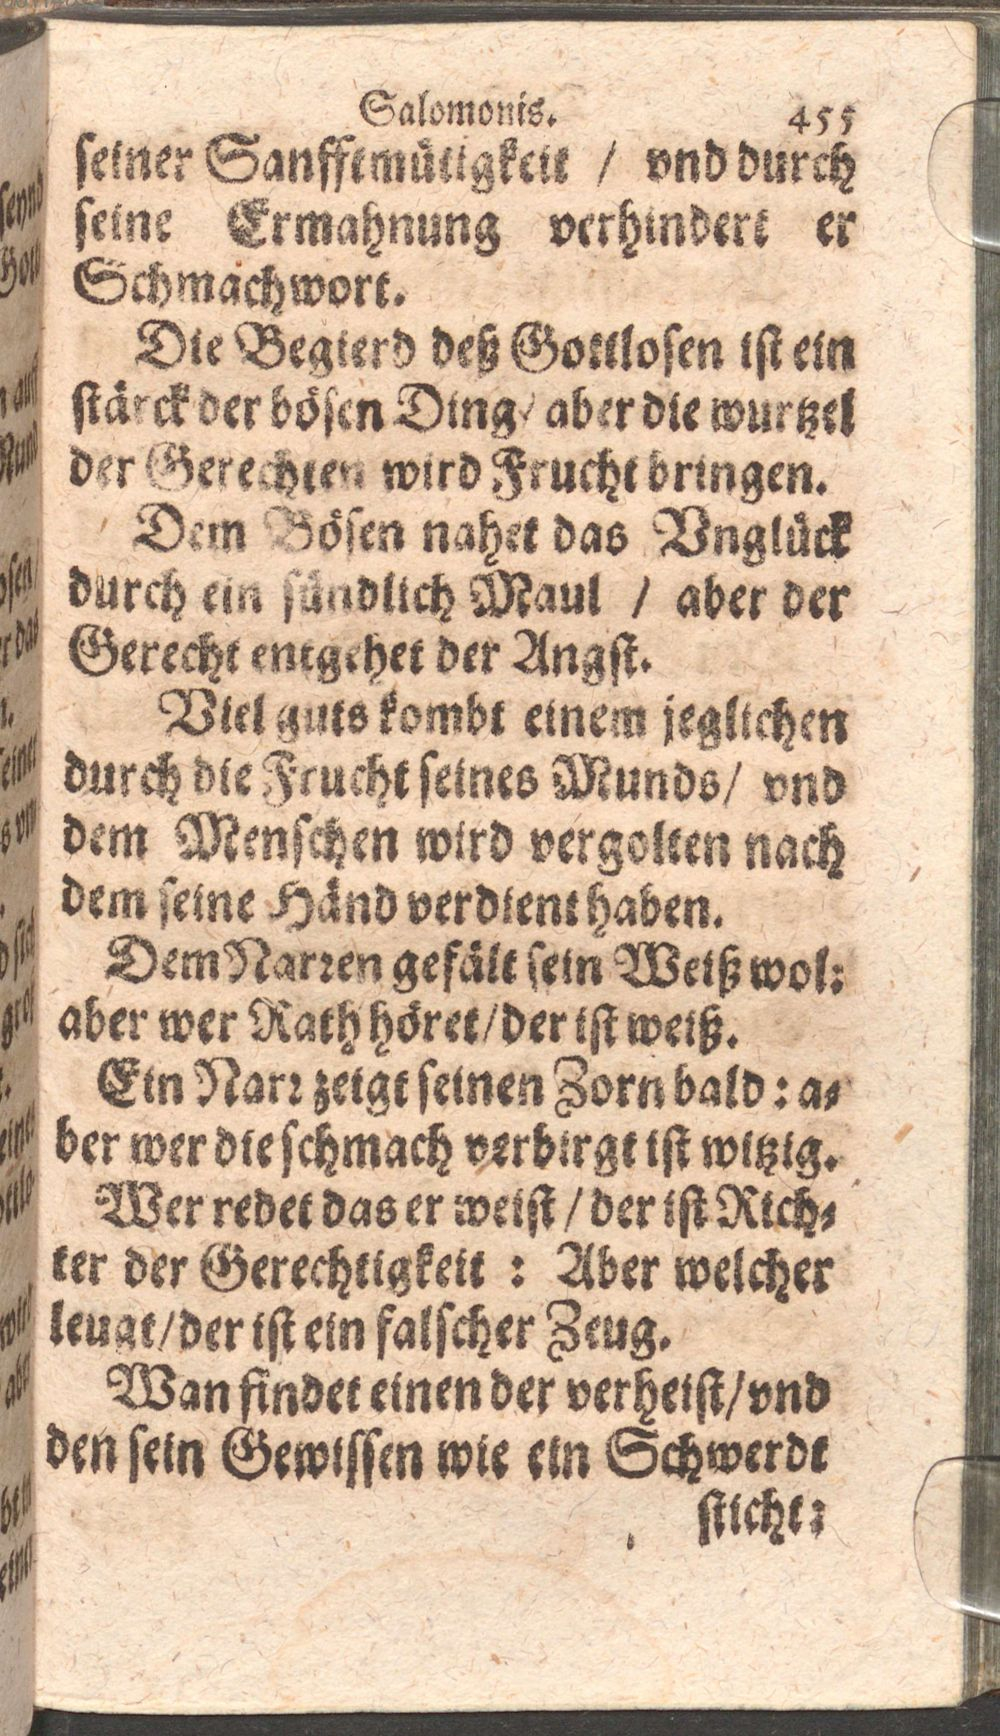 Salomonis. 455
seiner Sanfftmütigkeit / vnd durch
seine Ermahnung verhindert er
Schmachwort.
Die Begierd deß Gottlosen ist ein
stärck der bösen Ding / aber die wurtzel
der Gerechten wird Frucht bringen.
Dem Bösen nahet das Vnglück
durch ein sündlich Maul / aber der
Gerecht entgehet der Angst.
Viel guts kombt einem jeglichen
durch die Frucht seines Munds / vnd
dem Menschen wird vergolten nach
dem seine Händ verdient haben.
Dem Narren gefält sein Weiß wol:
aber wer Rath höret / der ist weiß.
Ein Narr zeigt seinen Zorn bald: a-
ber wer die schmach verbirgt ist witzig.
Wer redet das er weist / der ist Rich-
ter der Gerechtigkeit : Aber welcher
leugt / der ist ein falscher Zeug.
Wan findet einen der verheist / vnd
den sein Gewissen wie ein Schwerdt
sticht: